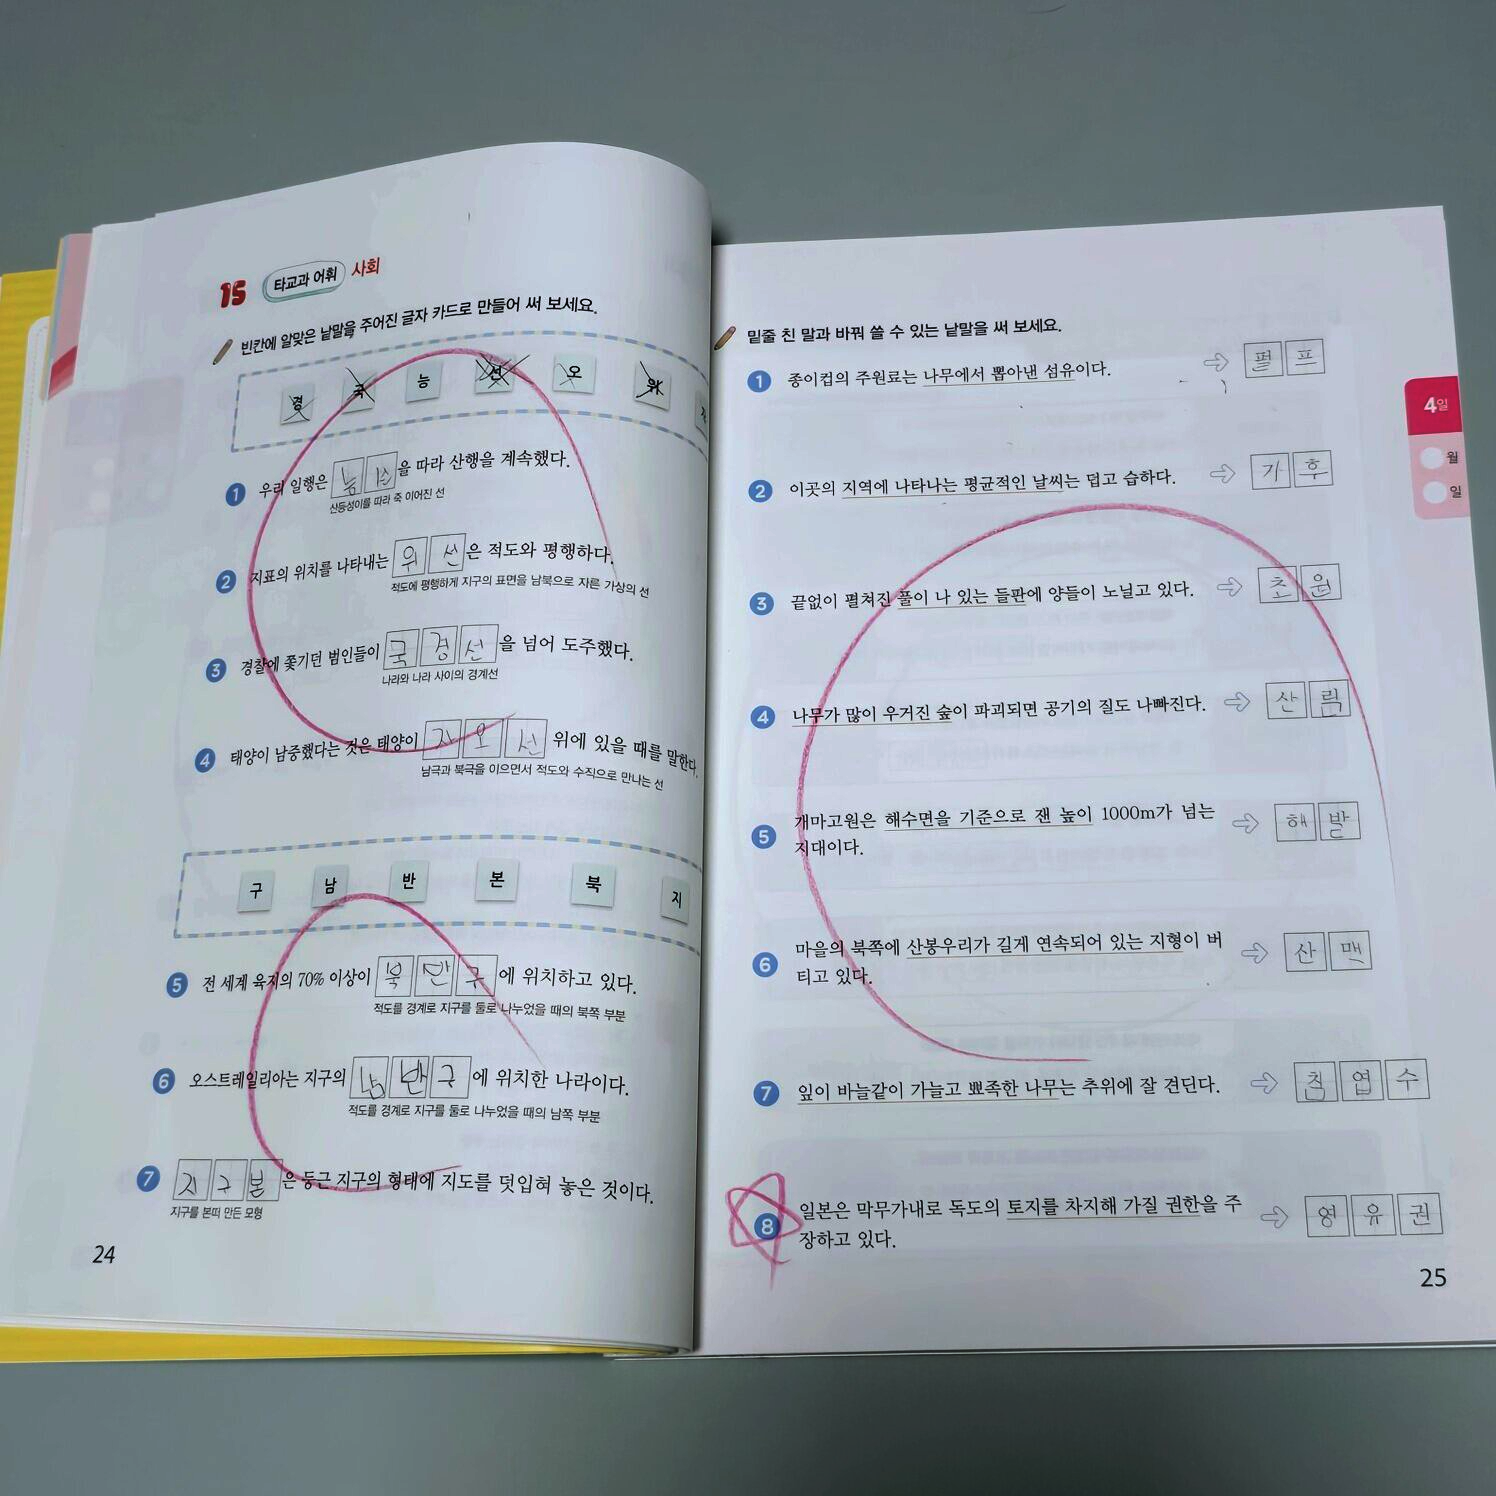 15 타교과 어휘 사회
빈칸에 알맞은 낱말을 주어진 글자 카드로 만들어 써 보세요.
경 국 능 선 오 위 자
1 우리 일행은 능선을 따라 산행을 계속했다.
산등성이를 따라 죽 이어진 선
2 지표의 위치를 나타내는 위선은 적도와 평행하다.
적도에 평행하게 지구의 표면을 남북으로 자른 가상의 선
3 경찰에 쫓기던 범인들이 국경선을 넘어 도주했다.
나라와 나라 사이의 경계선
4 태양이 남중했다는 것은 태양이 자오선 위에 있을 때를 말한다.
남극과 북극을 이으면서 적도와 수직으로 만나는 선
구 남 반 본 북 지
5 전 세계 육지의 70% 이상이 북반구에 위치하고 있다.
적도를 경계로 지구를 둘로 나누었을 때의 북쪽 부분
6 오스트레일리아는 지구의 남반구에 위치한 나라이다.
적도를 경계로 지구를 둘로 나누었을 때의 남쪽 부분
7 지구본은 둥근 지구의 형태에 지도를 덧입혀 놓은 것이다.
지구를 본떠 만든 모형
24
밑줄 친 말과 바꿔 쓸 수 있는 낱말을 써 보세요.
1 종이컵의 주원료는 나무에서 뽑아낸 섬유이다. 펄프
2 이곳의 지역에 나타나는 평균적인 날씨는 덥고 습하다. 기후
3 끝없이 펼쳐진 풀이 나 있는 들판에 양들이 노닐고 있다. 초원
4 나무가 많이 우거진 숲이 파괴되면 공기의 질도 나빠진다. 산림
5 개마고원은 해수면을 기준으로 잰 높이 1000m가 넘는 해발
지대이다.
6 마을의 북쪽에 산봉우리가 길게 연속되어 있는 지형이 버 산맥
티고 있다.
7 잎이 바늘같이 가늘고 뾰족한 나무는 추위에 잘 견딘다. 침엽수
8 일본은 막무가내로 독도의 토지를 차지해 가질 권한을 주 영유권
장하고 있다.
4일
월
일
25